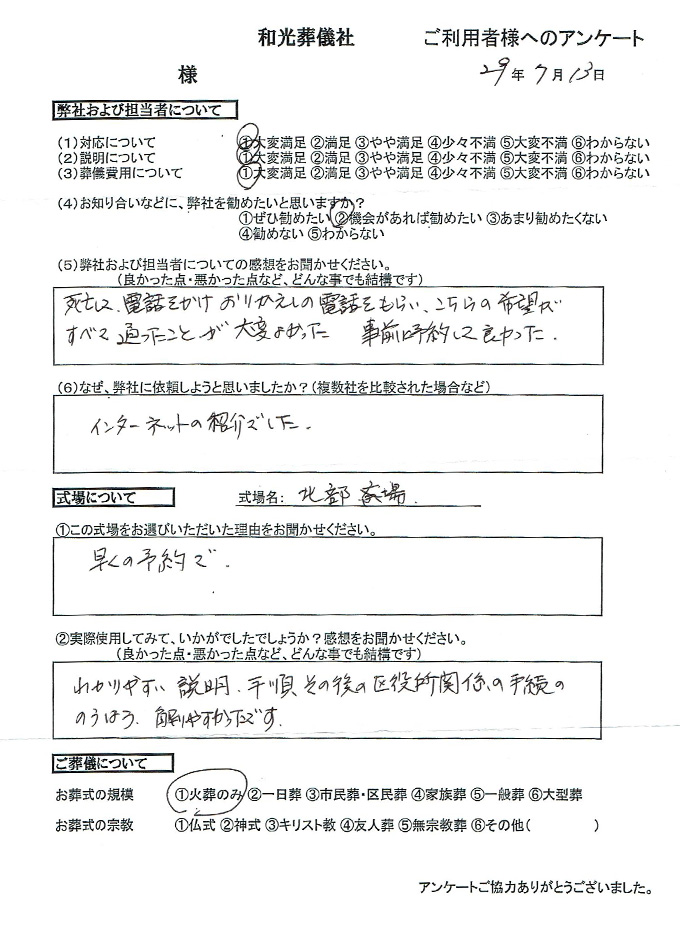 和光葬儀社　ご利用者様へのアンケート
様　29年7月13日
弊社および担当者について
(1)対応について　①大変満足 ②満足 ③やや満足 ④少々不満 ⑤大変不満 ⑥わからない
(2)説明について　①大変満足 ②満足 ③やや満足 ④少々不満 ⑤大変不満 ⑥わからない
(3)葬儀費用について　①大変満足 ②満足 ③やや満足 ④少々不満 ⑤大変不満 ⑥わからない
(4)お知り合いなどに、弊社を勧めたいと思いますか?
①ぜひ勧めたい ②機会があれば勧めたい ③あまり勧めたくない
④勧めない ⑤わからない
(5)弊社および担当者についての感想をお聞かせください。
(良かった点・悪かった点など、どんな事でも結構です)
死亡して、電話をかけ おりかえしの電話をもらい、こちらの希望が
すべて通ったことが大変よかった　事前に予約して良かった.
(6)なぜ、弊社に依頼しようと思いましたか?(複数社を比較された場合など)
インターネットの紹介でした.
式場について　式場名: 北部斎場.
①この式場をお選びいただいた理由をお聞かせください。
早くの予約で.
②実際使用してみて、いかがでしたでしょうか?感想をお聞かせください。
(良かった点・悪かった点など、どんな事でも結構です)
わかりやすい説明、手順 その後の区役所関係の手続の
解りやすかったです.
ご葬儀について
お葬式の規模　①火葬のみ ②一日葬 ③市民葬・区民葬 ④家族葬 ⑤一般葬 ⑥大型葬
お葬式の宗教　①仏式 ②神式 ③キリスト教 ④友人葬 ⑤無宗教葬 ⑥その他(　　　)
アンケートご協力ありがとうございました。